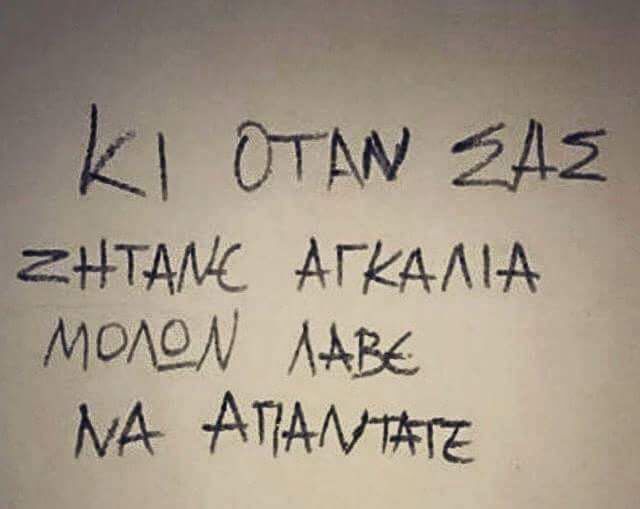 ΚΙ ΟΤΑΝ ΣΑΣ
ΖΗΤΑΝΕ ΑΓΚΑΛΙΑ
ΜΟΛΩΝ ΛΑΒΕ
ΝΑ ΑΠΑΝΤΑΤΕ